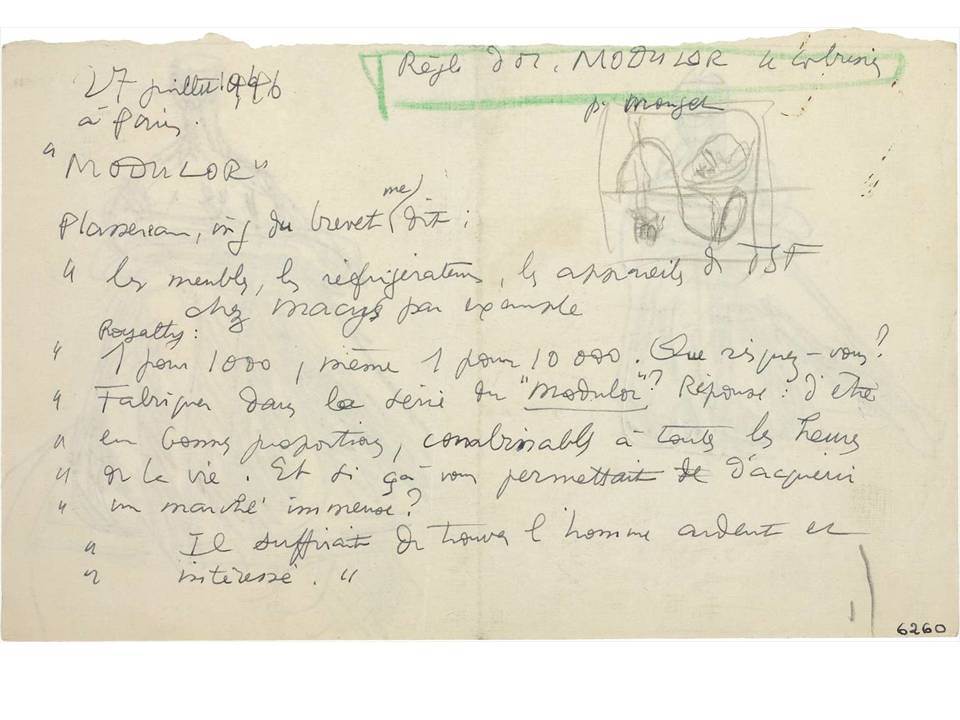 27 juillet 1946
à Paris.
Règle d'or. MODULOR Le Corbusier
p.
"MODULOR"
Plassereau, ing du brevet (me) dit :
" les meubles, les réfrigérateurs, les appareils de TSF
chez macys par exemple
Royalty :
" 1 pour 1000, même 1 pour 10 000. Que risquez-vous?
" Fabriquer dans la série du "Modulor"? Réponse : d'être
" en bonnes proportions, combinables à toutes les heures
" de la vie. Et si ça vous permettait de d'acquérir
" un marché immense?
" Il suffirait de trouver l'homme ardent et
" intéressé. "
6260